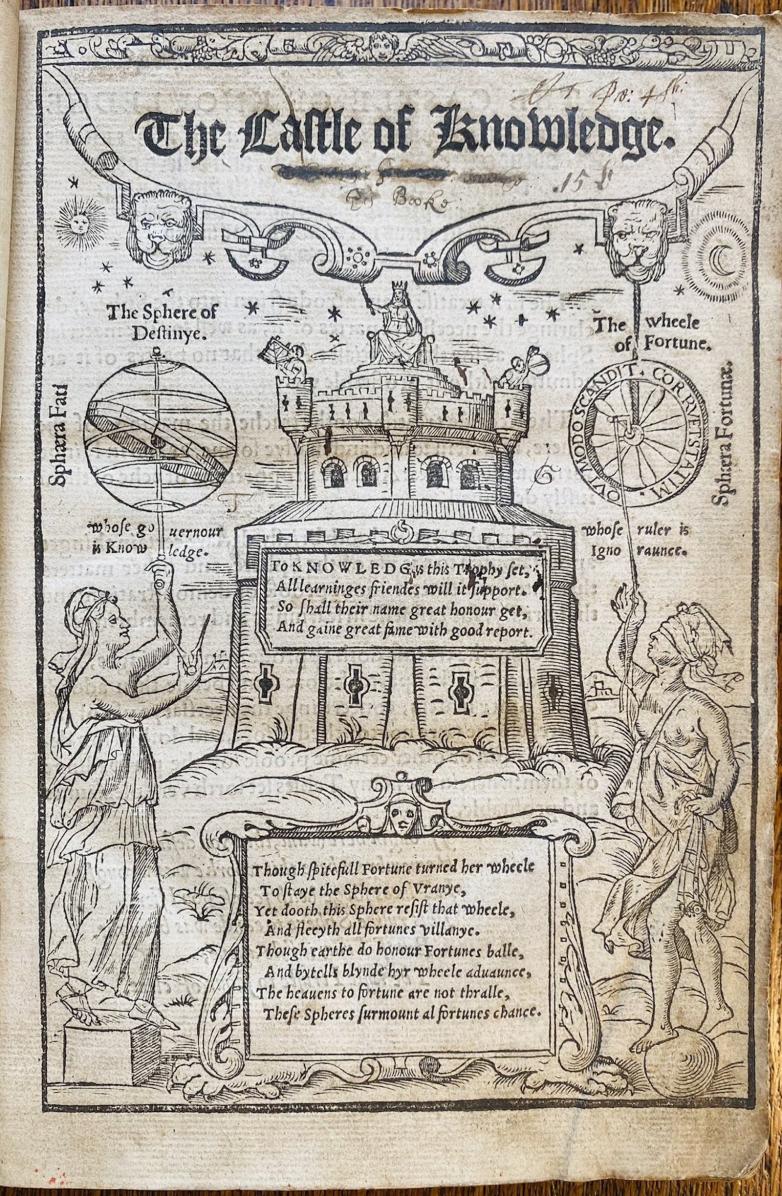 The Castle of Knowledge.
.15
Booke
The Sphere of
Destinye.
The wheele
of Fortune.
Sphæra Fati
QVI MODO SCANDIT ✦ CORRVET STATIM.
Sphæra Fortunæ.
whose go uernour
is Know ledge.
whose ruler is
Igno raunce.
G
T
To KNOWLEDG is this Trophy set,
All learninges friendes will it support.
So shall their name great honour get,
And gaine great fame with good report.
Though spitefull Fortune turned her wheele
To staye the Sphere of Vranye,
Yet dooth this Sphere resist that wheele,
And fleeyth all fortunes villanye.
Though earthe do honour Fortunes balle,
And bytells blynde hyr wheele aduaunce,
The heauens to fortune are not thralle,
These Spheres surmount al fortunes chance.